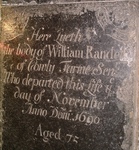 Here lyeth
the body of William Rand
of Wately Furme Sen
Who departed this life
day of November
Anno Dom: 1690
Aged 75